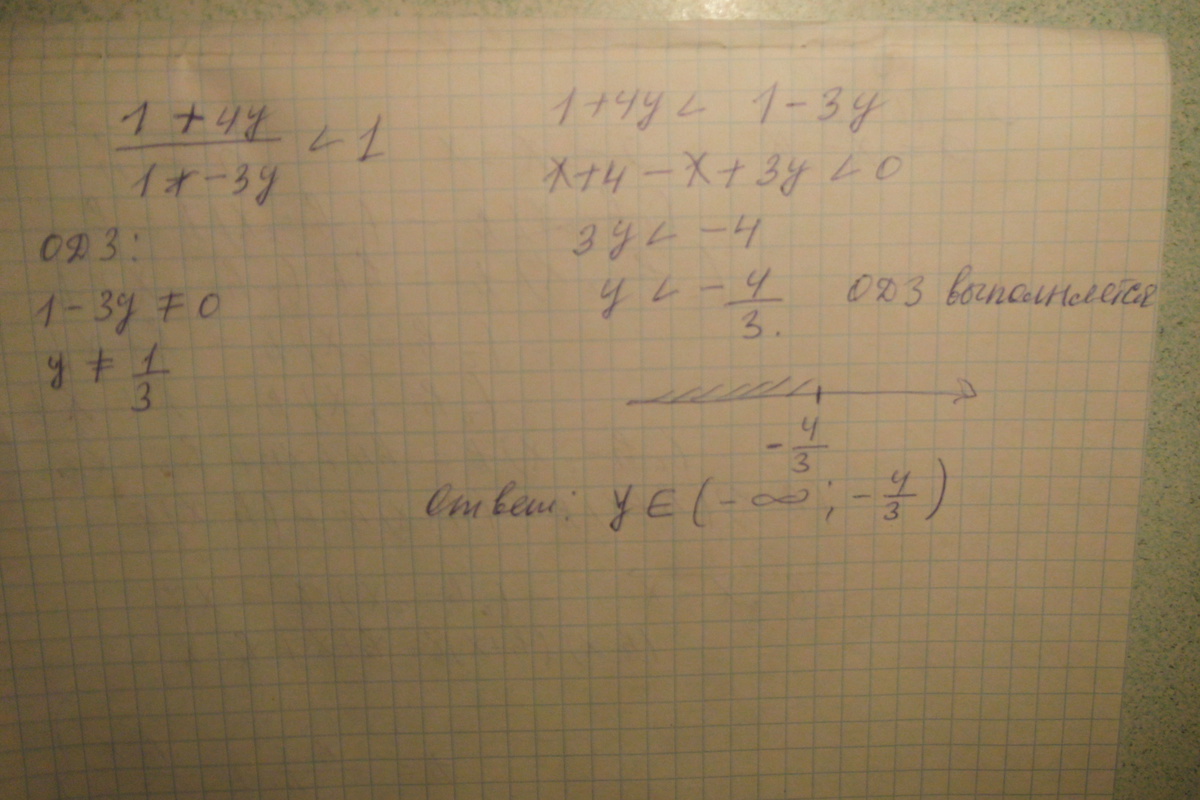 1 + 4y / 1 - 3y < 1
ОДЗ:
1 - 3y ≠ 0
y ≠ 1/3
1 + 4y < 1 - 3y
1 + 4 - 1 + 3y < 0
3y < -4
y < - 4/3. ОДЗ выполняется
- 4/3
Ответ: y ∈ (-∞; - 4/3)